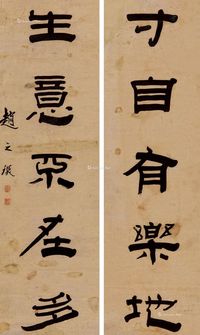 寸自有樂地
生意在多
趙之琛